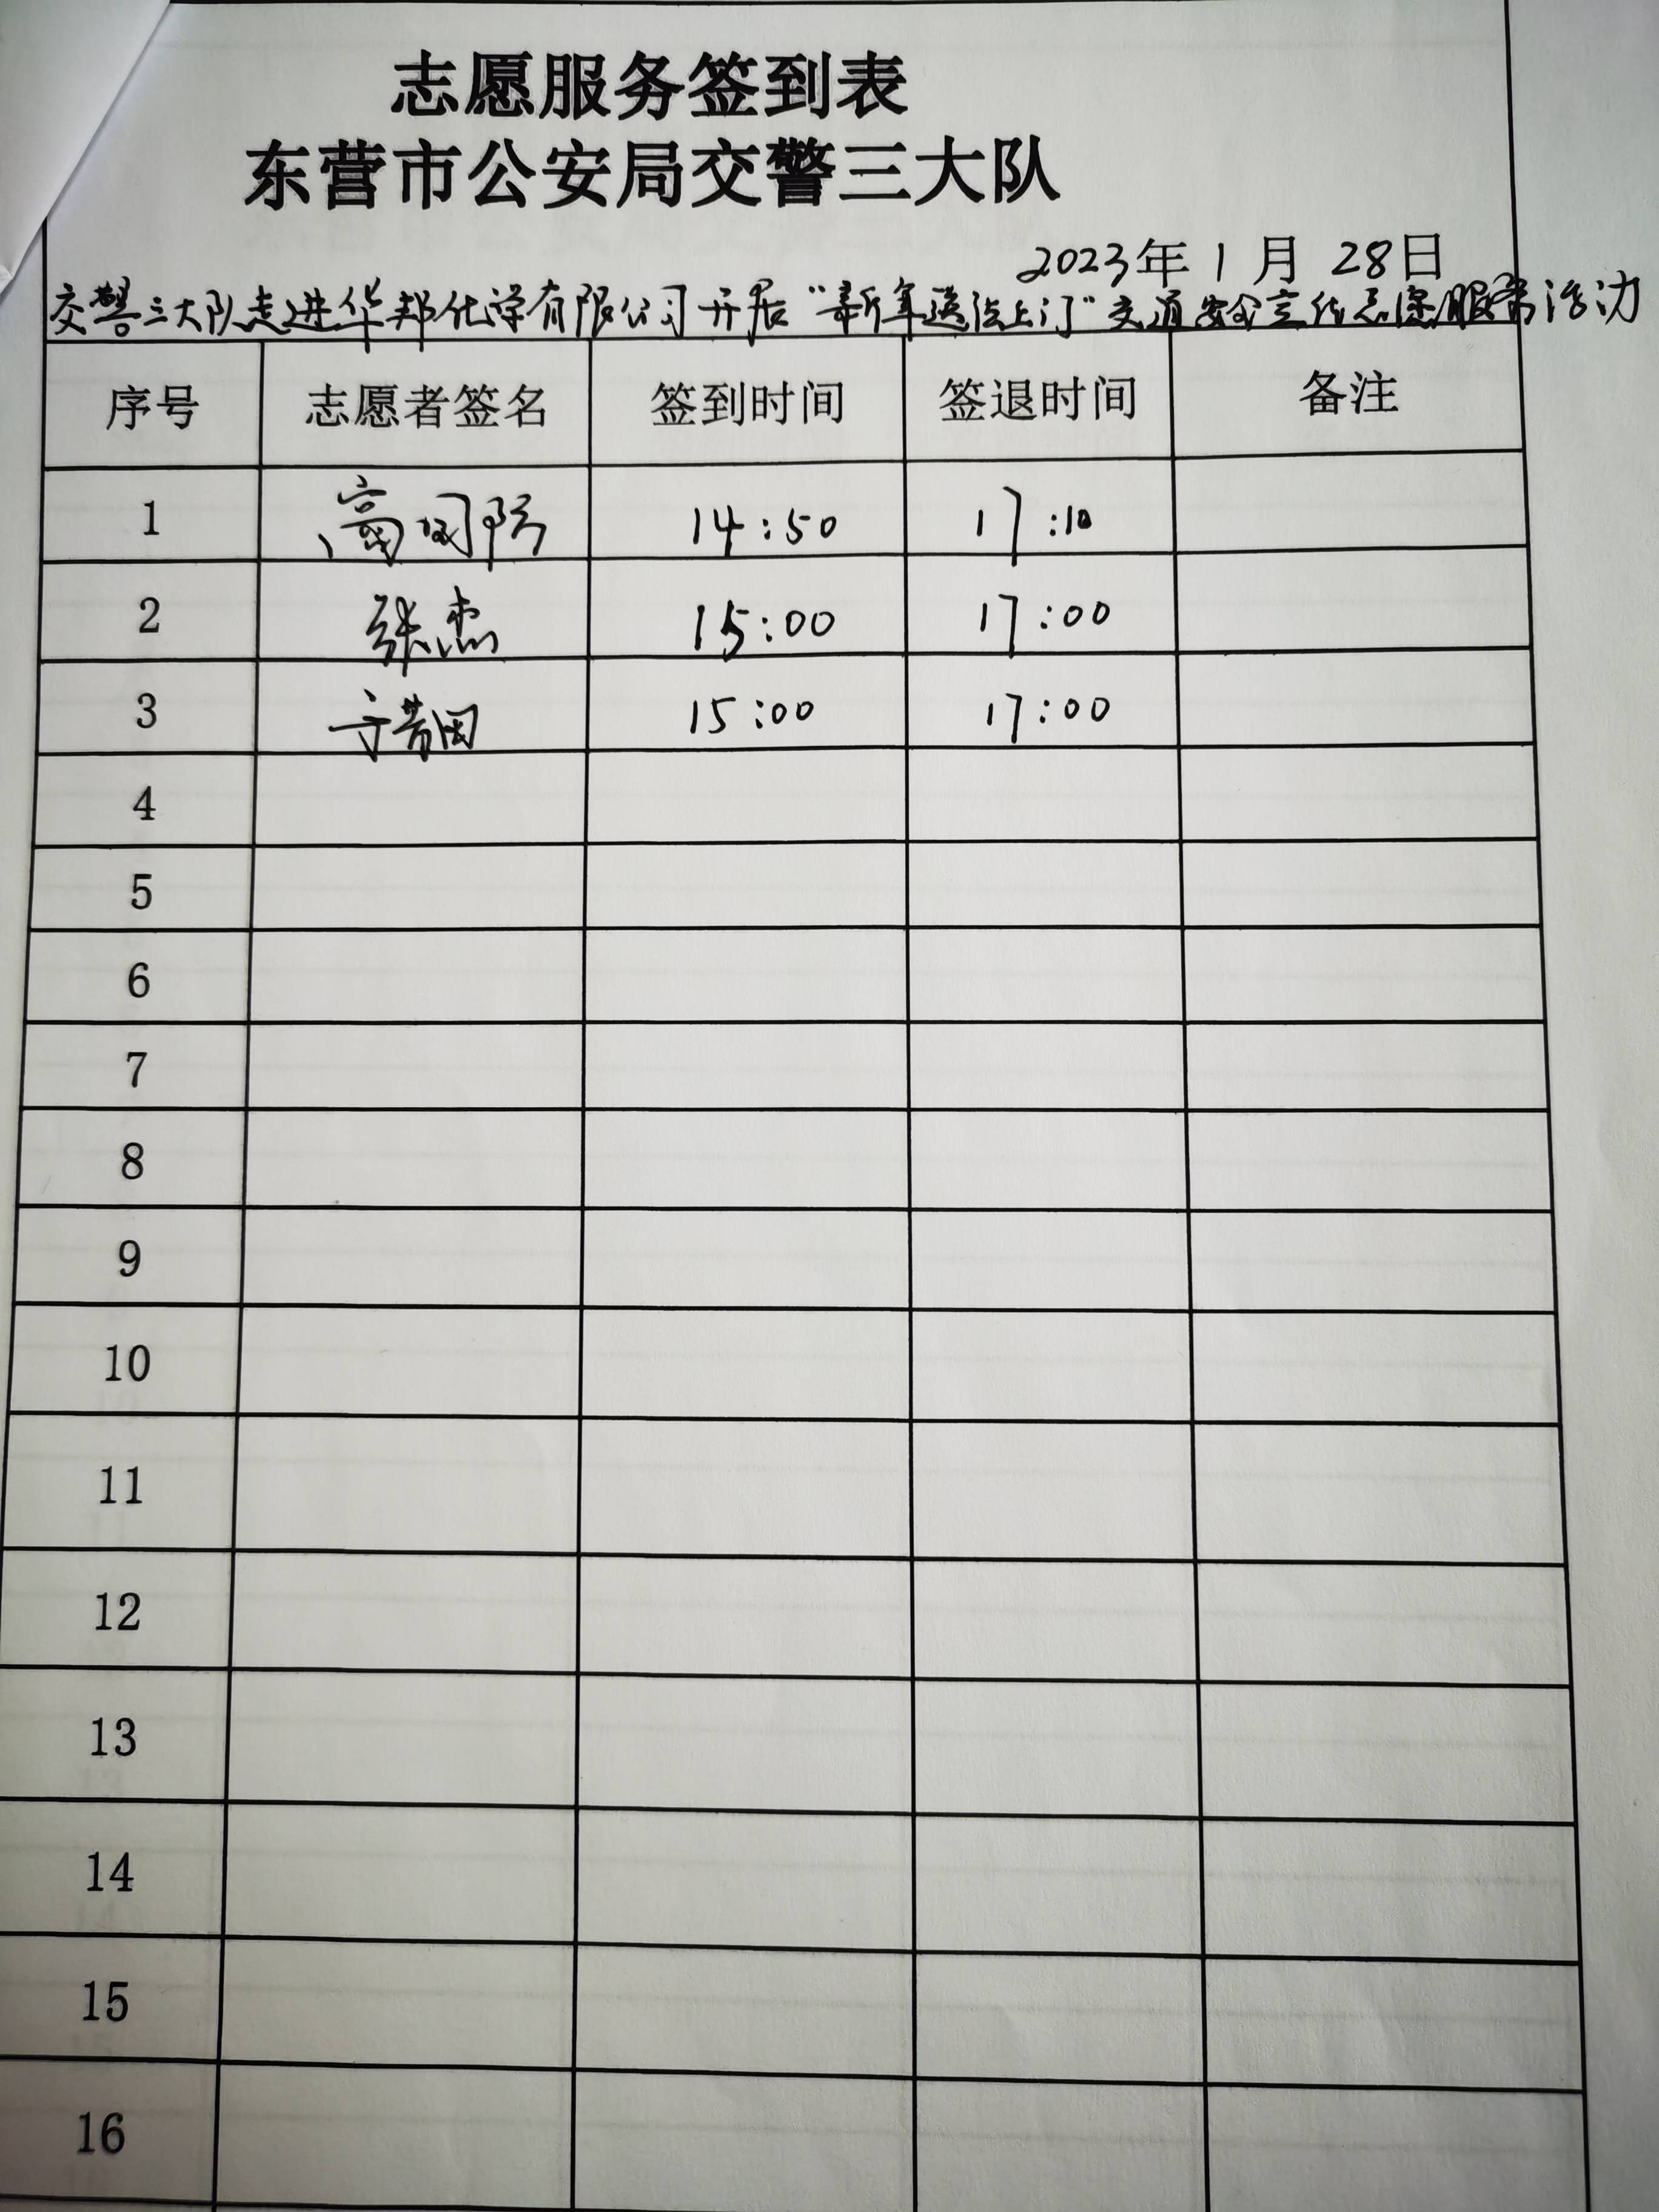 志愿服务签到表
东营市公安局交警三大队
2023年 1 月 28日
交警三大队走进华邦化学有限公司开展“新年送法上门”交通安全宣传志愿服务活动
序号 志愿者签名 签到时间 签退时间 备注
1 14:50 17:10
2 张杰 15:00 17:00
3 15:00 17:00
4
5
6
7
8
9
10
11
12
13
14
15
16